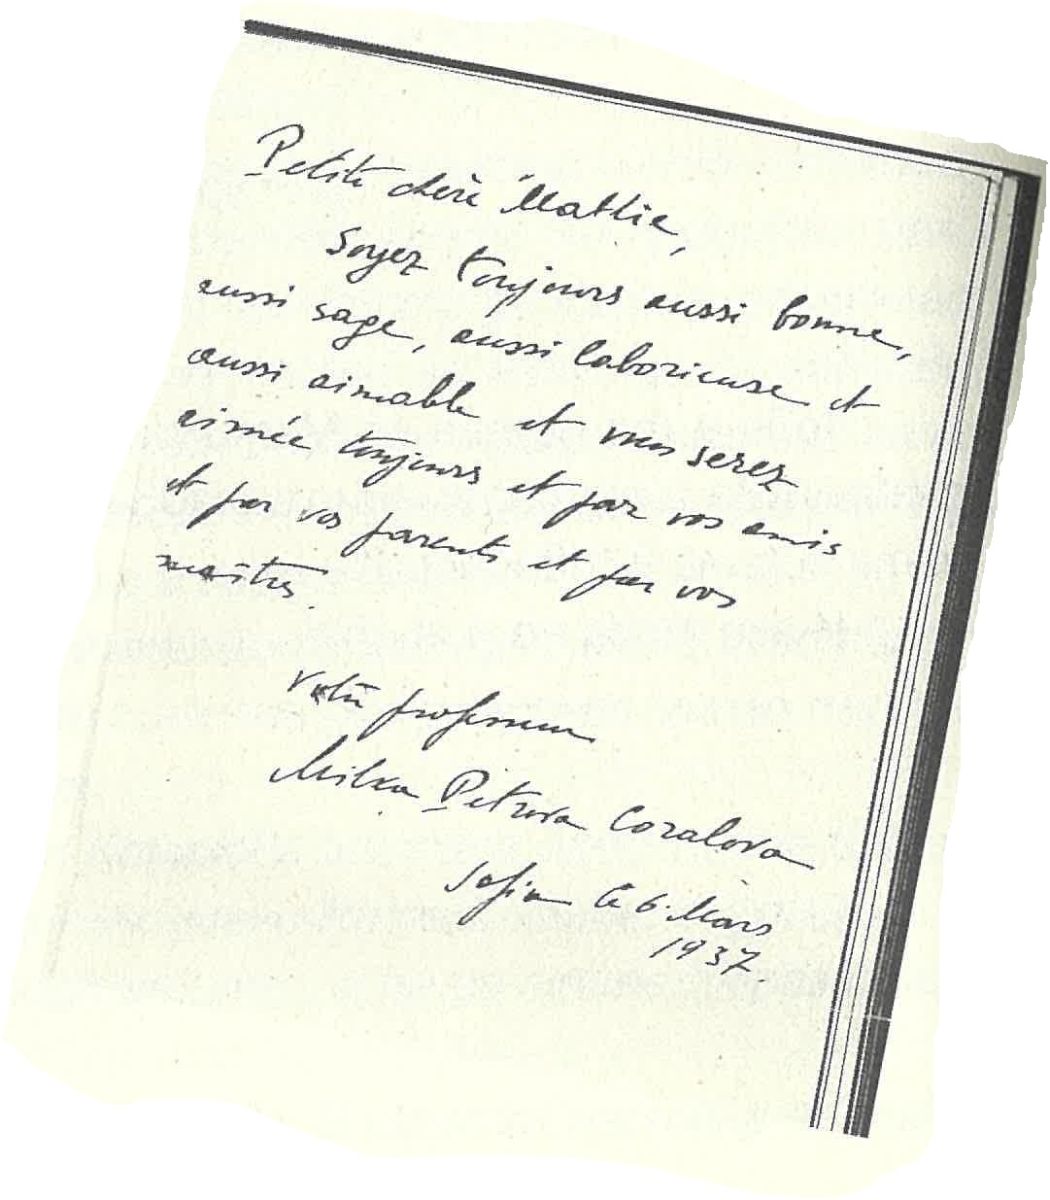 Petite chère Mattie,
Soyez toujours aussi bonne,
aussi sage, aussi laborieuse et
aussi aimable et vous serez
aimée toujours et par vos amis
et par vos parents et par vos
maîtres.
Votre professeur
Milka Petrova Coralova
Sofia le 6 Mars
1937.